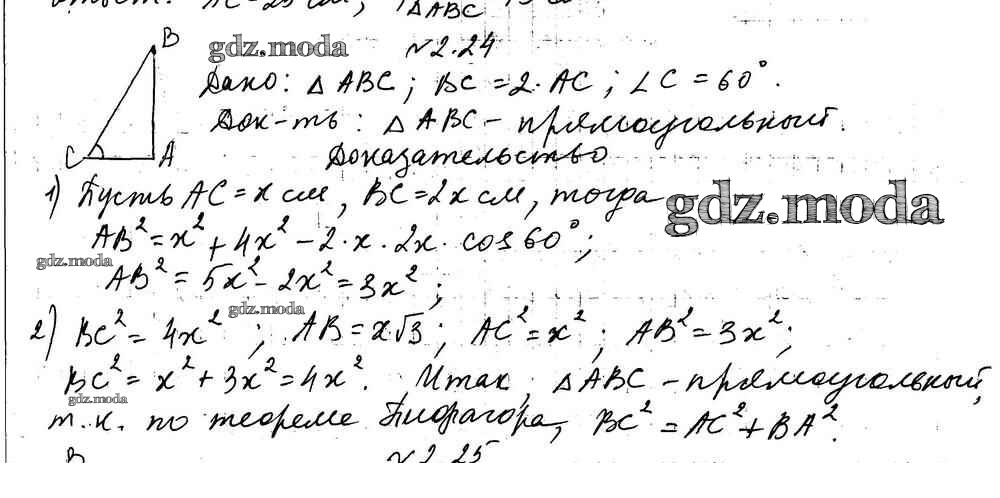 △ABC
B
gdz.moda
№2.24
Дано: △ABC; BC = 2·AC; ∠C = 60°.
Док-ть: △ABC – прямоугольный.
C A
Доказательство
1) Пусть AC = x см, BC = 2x см, тогда
gdz.moda
AB² = x² + 4x² – 2·x·2x·cos60°;
gdz.moda
AB² = 5x² – 2x² = 3x²;
gdz.moda
2) BC² = 4x²; AB = x√3; AC² = x²; AB² = 3x²;
BC² = x² + 3x² = 4x². Итак, △ABC – прямоугольный,
gdz.moda
т.к. по теореме Пифагора, BC² = AC² + BA².
B
№2.25